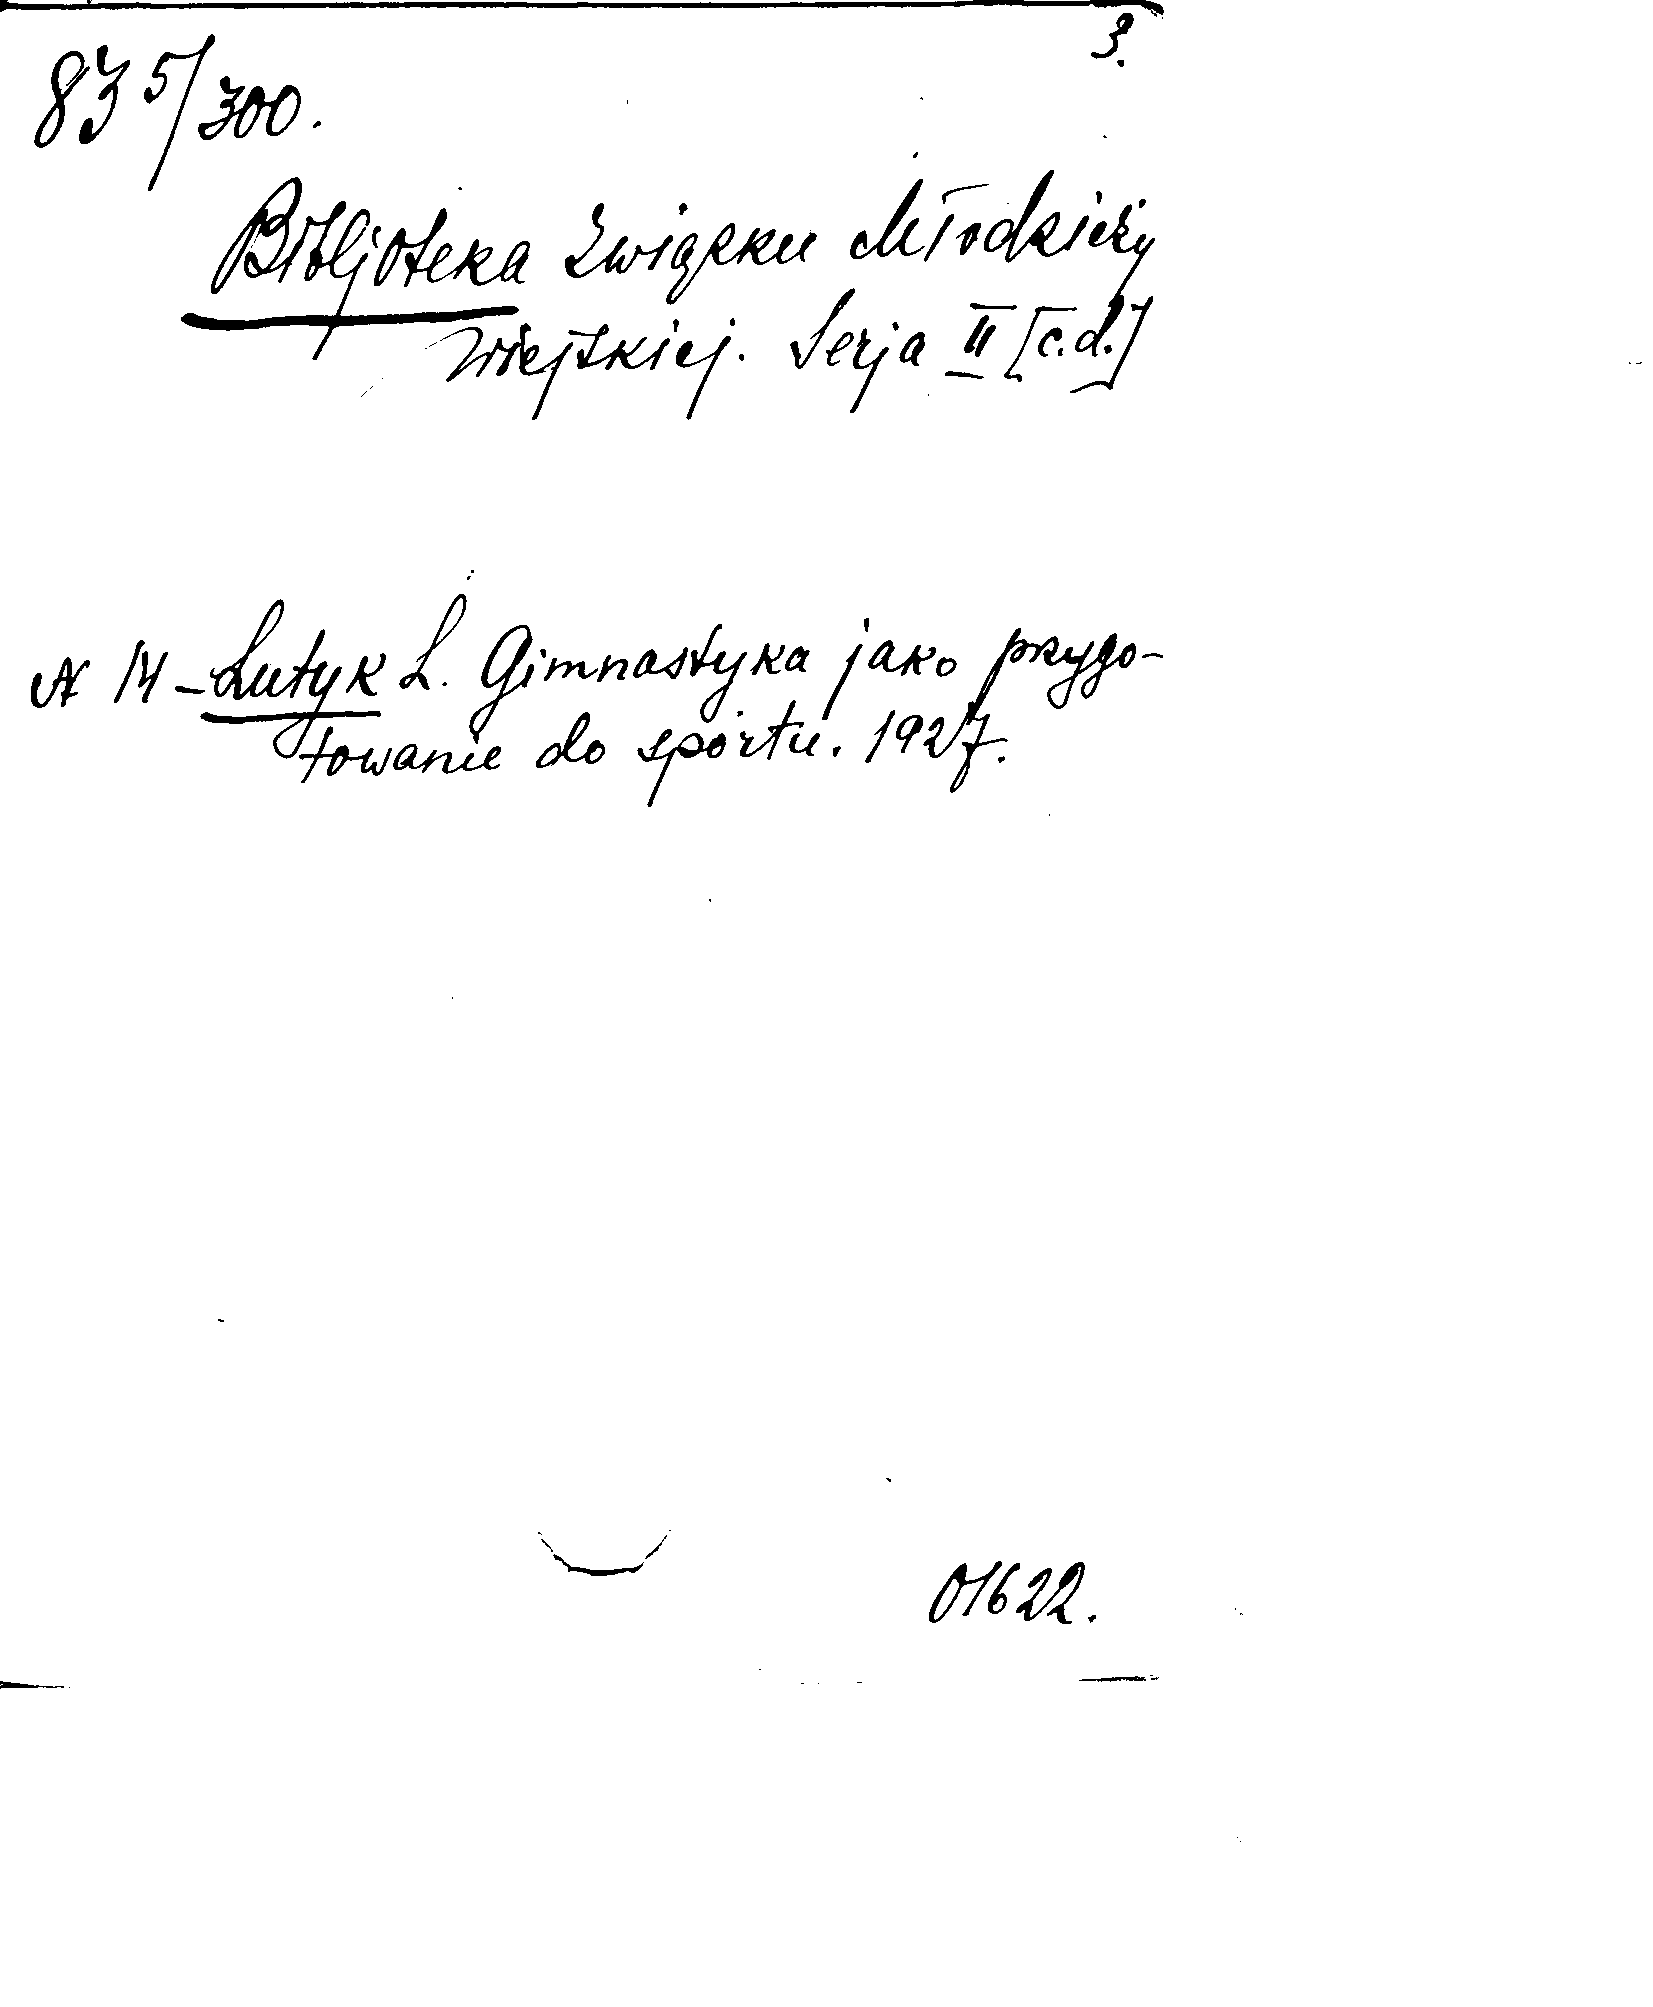 3.
83 5/300.
Bibljoteka Związku Młodzieży
Wiejskiej. Serja II [c.d.]
N 14 - Lutyk L. Gimnastyka jako przygo-
towanie do sportu. 1927.
01622.